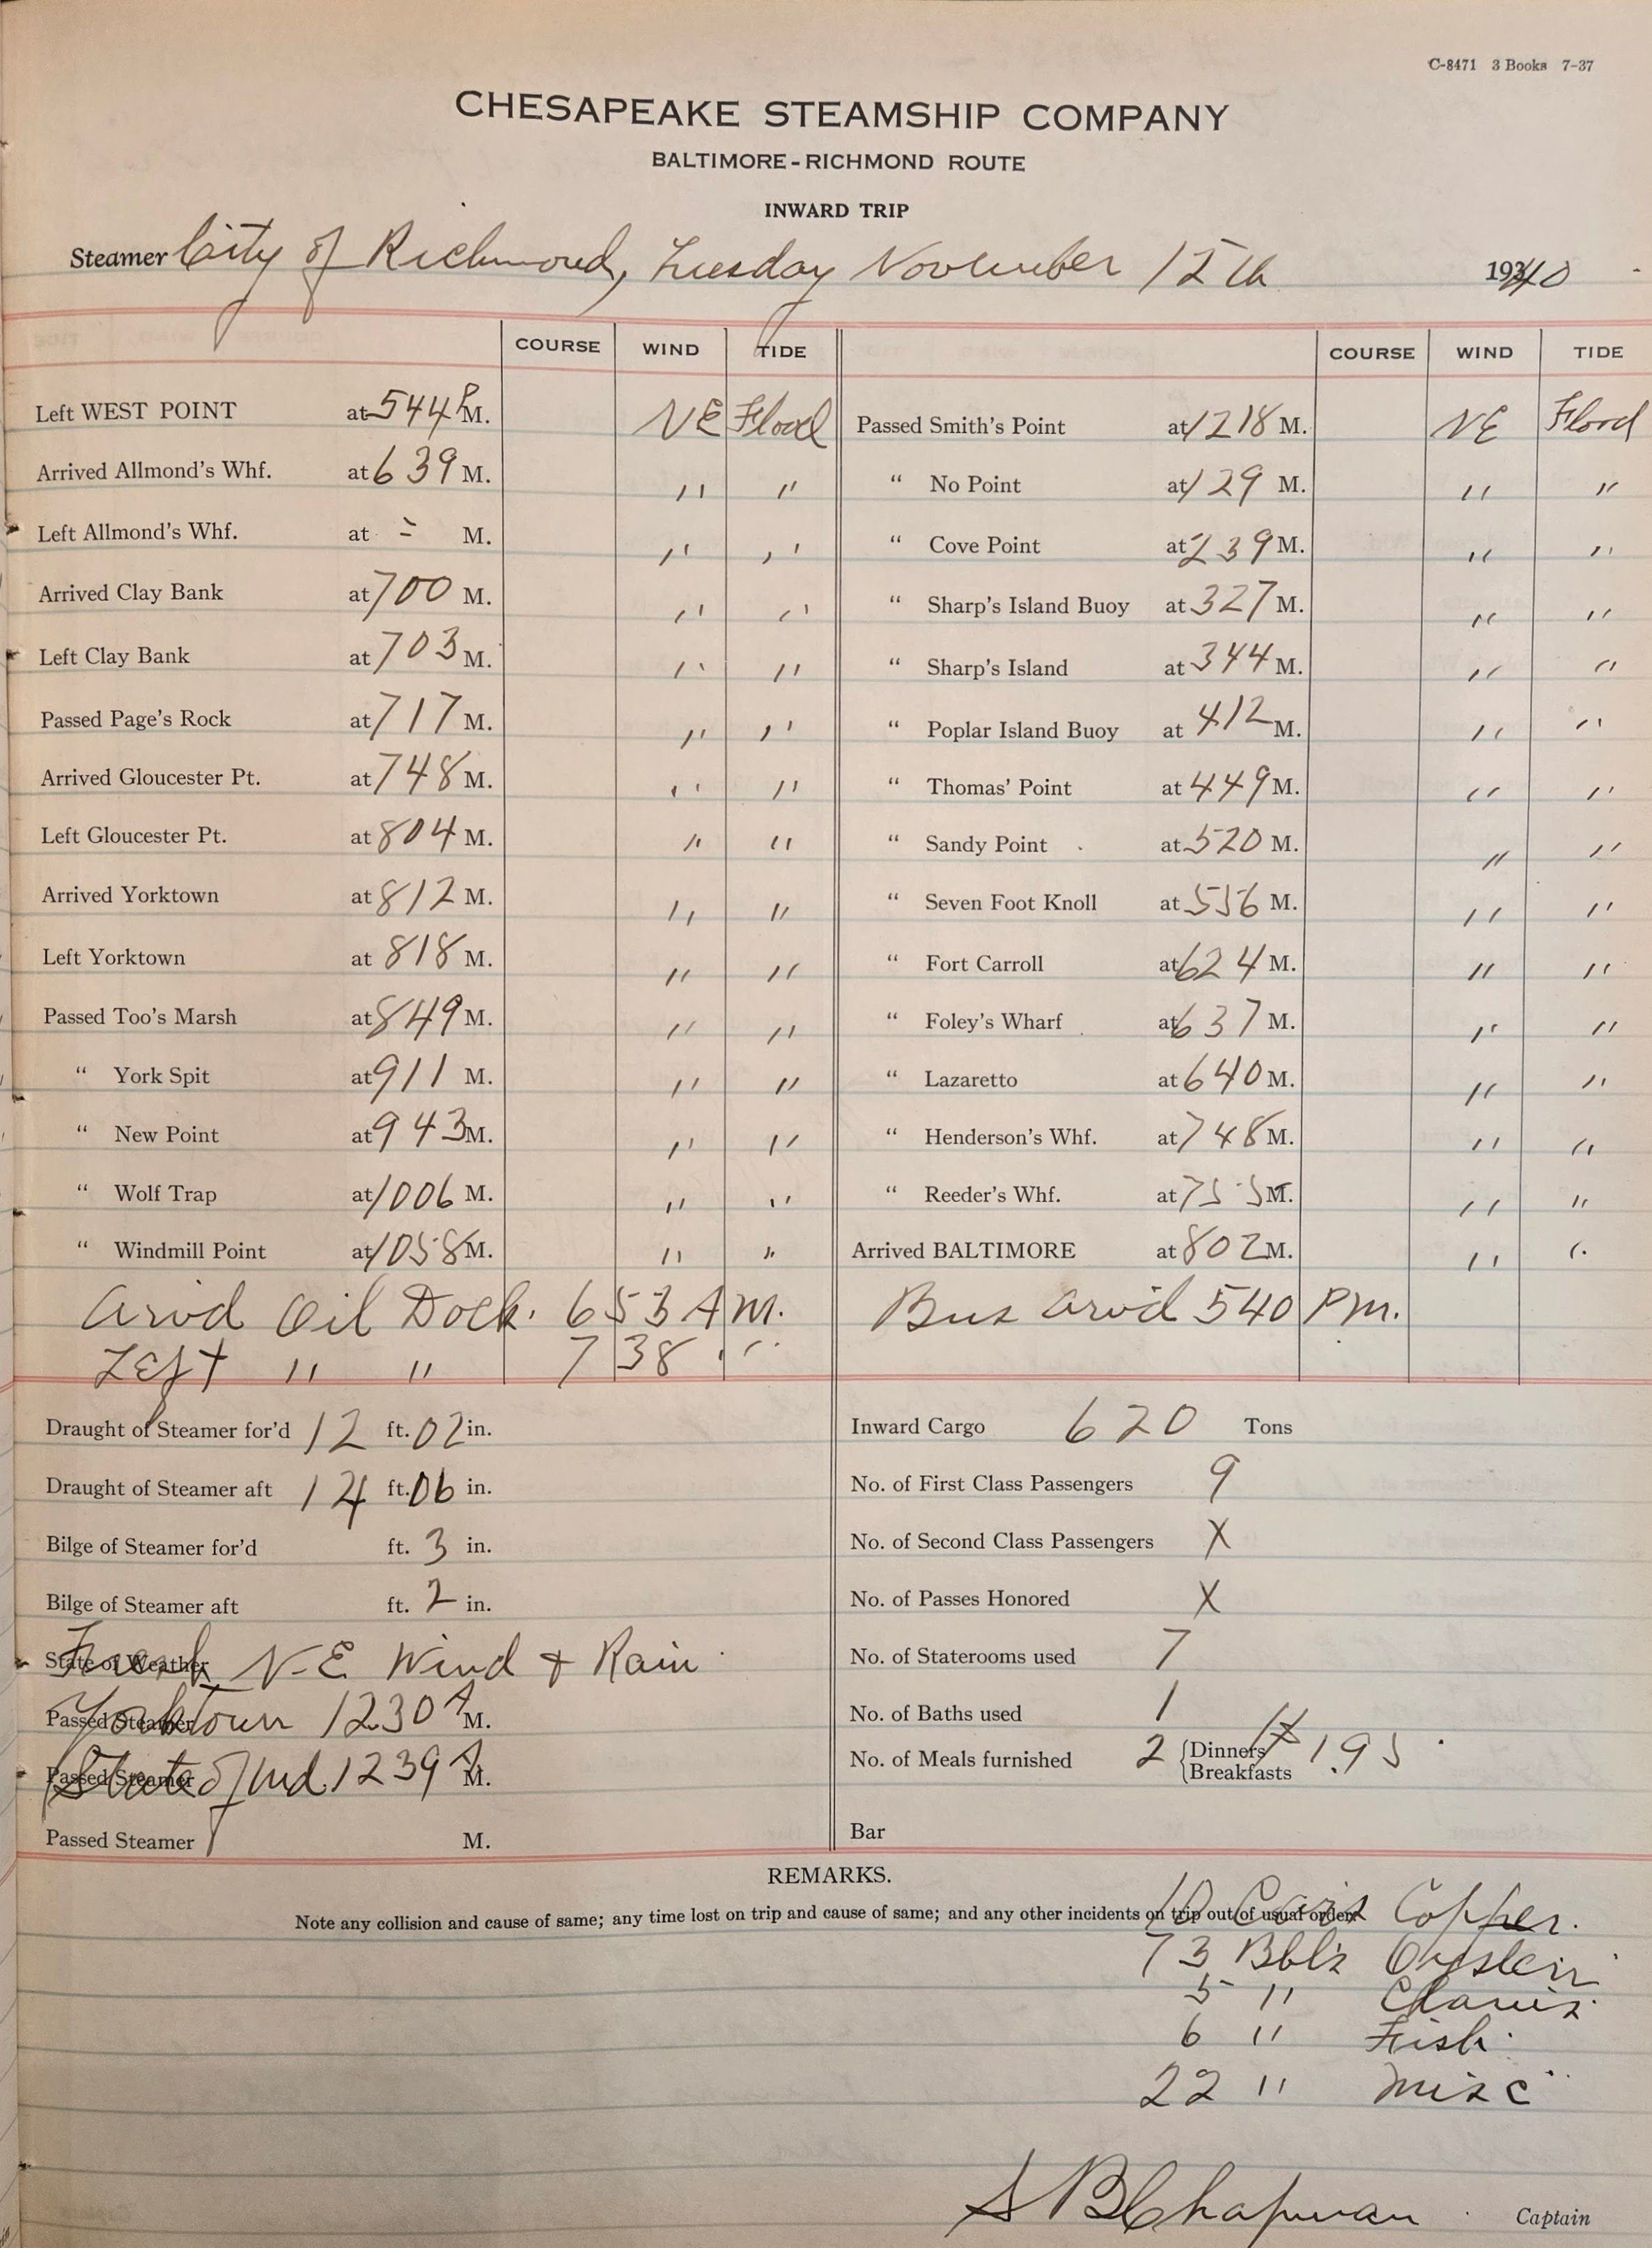 C-8471 3 Books 7-37
CHESAPEAKE STEAMSHIP COMPANY
BALTIMORE-RICHMOND ROUTE
INWARD TRIP
Steamer City of Richmond, Tuesday November 12th 1940
COURSE WIND TIDE COURSE WIND TIDE
Left WEST POINT at 544 P M. NE Flood
Arrived Allmond's Whf. at 639 M. " "
Left Allmond's Whf. at = M. " "
Arrived Clay Bank at 700 M. " "
Left Clay Bank at 703 M. " "
Passed Page's Rock at 717 M. " "
Arrived Gloucester Pt. at 748 M. " "
Left Gloucester Pt. at 804 M. " "
Arrived Yorktown at 812 M. " "
Left Yorktown at 818 M. " "
Passed Too's Marsh at 849 M. " "
" York Spit at 911 M. " "
" New Point at 943 M. " "
" Wolf Trap at 1006 M. " "
" Windmill Point at 1058 M. " "
Arvd Oil Dock. 653 A M.
Left " " 738 "
Passed Smith's Point at 1218 M. NE Flood
" No Point at 129 M. " "
" Cove Point at 239 M. " "
" Sharp's Island Buoy at 327 M. " "
" Sharp's Island at 344 M. " "
" Poplar Island Buoy at 412 M. " "
" Thomas' Point at 449 M. " "
" Sandy Point at 520 M. " "
" Seven Foot Knoll at 556 M. " "
" Fort Carroll at 624 M. " "
" Foley's Wharf at 637 M. " "
" Lazaretto at 640 M. " "
" Henderson's Whf. at 748 M. " "
" Reeder's Whf. at 755 M. " "
Arrived BALTIMORE at 802 M. " "
Bus arvd 540 PM.
Draught of Steamer for'd 12 ft. 02 in.
Draught of Steamer aft 14 ft. 06 in.
Bilge of Steamer for'd ft. 3 in.
Bilge of Steamer aft ft. 2 in.
State of Weather Fresh N-E Wind + Rain
Passed Steamer Yorktown 1230 A M.
Passed Steamer State of Md 1239 A M.
Passed Steamer M.
Inward Cargo 620 Tons
No. of First Class Passengers 9
No. of Second Class Passengers X
No. of Passes Honored X
No. of Staterooms used 7
No. of Baths used 1
No. of Meals furnished 2 Dinners Breakfasts 1.95
Bar
REMARKS.
Note any collision and cause of same; any time lost on trip and cause of same; and any other incidents on trip out of usual order.
10 Cars Copper.
73 Bbls Oysters
5 " Clams.
6 " Fish.
22 " Misc
S B Chapman Captain